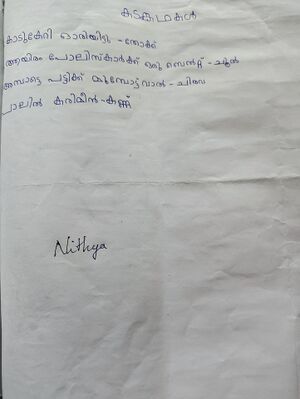 കടങ്കഥകൾ
കാടുകേറി ഓരിയിട്ടു - തോക്ക്
ആയിരം പോലിസ്കാർക്ക് ഒരു ബെൽറ്റ് - ചൂൽ
അമ്പാട്ടെ പട്ടിക്ക് മുമ്പോട്ട് വാൽ - ചിരവ
പാലിൽ കരിമീൻ - കണ്ണ്
Nithya